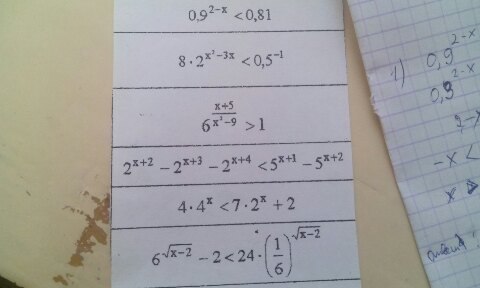 0,9^{2-x} < 0,81
8 · 2^{x²-3x} < 0,5^{-1}
6^{\frac{x+5}{x²-9}} > 1
2^{x+2} - 2^{x+3} - 2^{x+4} < 5^{x+1} - 5^{x+2}
4 · 4^x < 7 · 2^x + 2
6^{\sqrt{x-2}} - 2 < 24 · (\frac{1}{6})^{\sqrt{x-2}}
1) 0,9^{2-x}
0,9^{2-x}
-x <
x